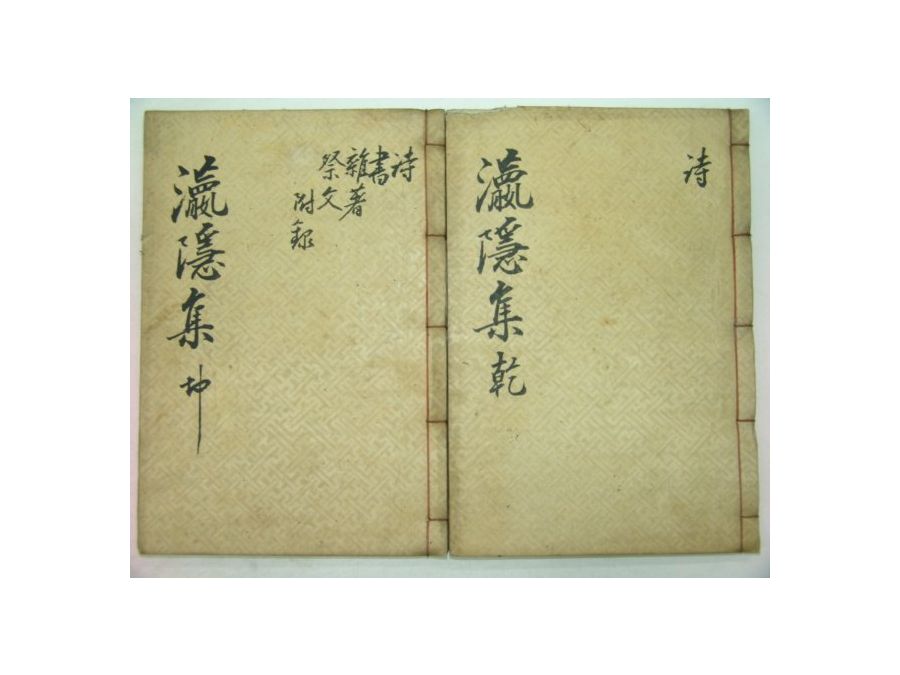 詩
瀛隱集 乾
詩
書
雜著
祭文
附錄
瀛隱集 坤